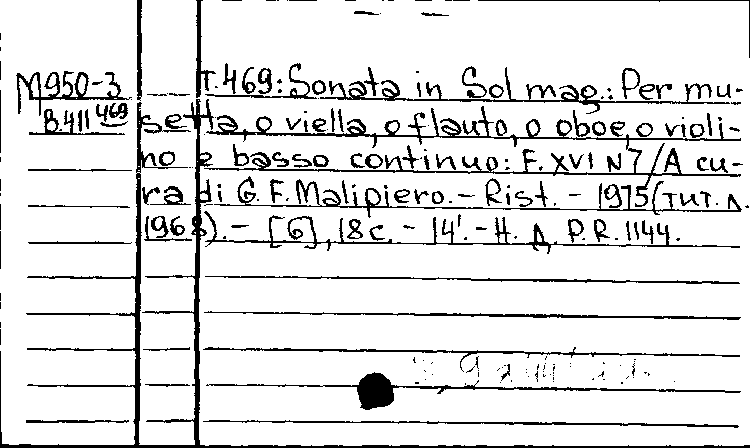 M950-3 T.469: Sonata in Sol mag.: Per mu-
B.411 469 setta, o viella, o flauto, o oboe, o violi-
no e basso continuo: F. XVI N7/A cu-
ra di G. F. Malipiero. – Rist. – 1975 (тит. л.
1968). – [6], 18 с. – 14'. – Н. Д. P.R. 1144.